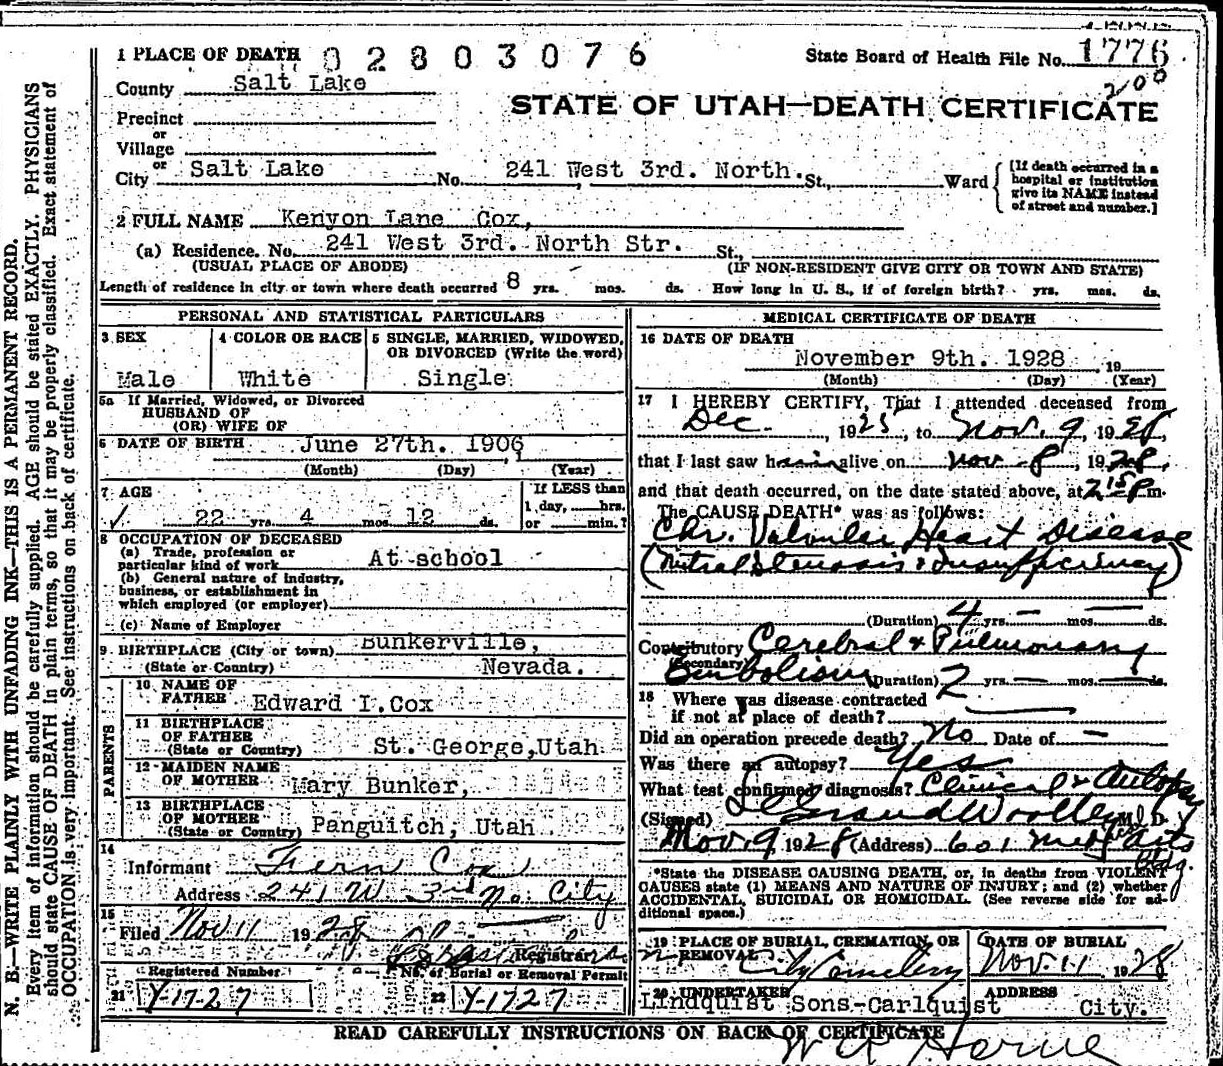 1 PLACE OF DEATH 02803076 State Board of Health File No. 1776
County Salt Lake 200
STATE OF UTAH—DEATH CERTIFICATE
Precinct
or
Village
or
City Salt Lake No. 241 West 3rd. North. St., Ward
[If death occurred in a
hospital or institution
give its NAME instead
of street and number.]
2 FULL NAME Kenyon Lane Cox,
(a) Residence. No. 241 West 3rd. North Str. St.,
(USUAL PLACE OF ABODE) (IF NON-RESIDENT GIVE CITY OR TOWN AND STATE)
Length of residence in city or town where death occurred 8 yrs. mos. ds. How long in U. S., if of foreign birth? yrs. mos. ds.
N. B.—WRITE PLAINLY WITH UNFADING INK—THIS IS A PERMANENT RECORD.
Every item of information should be carefully supplied. AGE should be stated EXACTLY. PHYSICIANS
should state CAUSE OF DEATH in plain terms, so that it may be properly classified. Exact statement of
OCCUPATION is very important. See instructions on back of certificate.
PERSONAL AND STATISTICAL PARTICULARS
3 SEX
Male
4 COLOR OR RACE
White
5 SINGLE, MARRIED, WIDOWED,
OR DIVORCED (Write the word)
Single
5a If Married, Widowed, or Divorced
HUSBAND OF
(OR) WIFE OF
6 DATE OF BIRTH June 27th. 1906
(Month) (Day) (Year)
7 AGE
22 yrs. 4 mos. 12 ds.
If LESS than
1 day, hrs.
or min.?
8 OCCUPATION OF DECEASED
(a) Trade, profession or
particular kind of work At school
(b) General nature of industry,
business, or establishment in
which employed (or employer)
(c) Name of Employer
9 BIRTHPLACE (City or town) Bunkerville,
(State or Country) Nevada.
PARENTS
10 NAME OF
FATHER Edward I. Cox
11 BIRTHPLACE
OF FATHER
(State or Country) St. George, Utah
12 MAIDEN NAME
OF MOTHER Mary Bunker,
13 BIRTHPLACE
OF MOTHER
(State or Country) Panguitch, Utah
14
Informant Fern Cox
Address 241 W 3rd No. City
15
Filed Nov 11 1928
Registrar
Registered Number
21 Y-1727
No. of Burial or Removal Permit
22 Y-1727
MEDICAL CERTIFICATE OF DEATH
16 DATE OF DEATH
November 9th. 1928 19
(Month) (Day) (Year)
17 I HEREBY CERTIFY, That I attended deceased from
Dec. , 1925, to Nov. 9, 1928,
that I last saw him alive on Nov 8, 1928,
and that death occurred, on the date stated above, at 2 15 P m.
The CAUSE DEATH* was as follows:
Chr. Valvular Heart Disease
(Mitral Stenosis & Insufficiency)
(Duration) 4 yrs. — mos. — ds.
Contributory Cerebral & Pulmonary
(Secondary) Embolism (Duration) 2 yrs. — mos. — ds.
18 Where was disease contracted
if not at place of death?
Did an operation precede death? No Date of —
Was there an autopsy? Yes
What test confirmed diagnosis? Clinical & Autopsy
(Signed) LeGrand Woolley M. D.
Nov. 9 1928 (Address) 601 Med Arts
Bldg.
*State the DISEASE CAUSING DEATH, or, in deaths from VIOLENT
CAUSES state (1) MEANS AND NATURE OF INJURY; and (2) whether
ACCIDENTAL, SUICIDAL OR HOMICIDAL. (See reverse side for ad-
ditional space.)
19 PLACE OF BURIAL, CREMATION, OR
REMOVAL City Cemetery
DATE OF BURIAL
Nov. 11 1928
20 UNDERTAKER
Lindquist Sons-Carlquist
ADDRESS
City.
READ CAREFULLY INSTRUCTIONS ON BACK OF CERTIFICATE
W A Horne